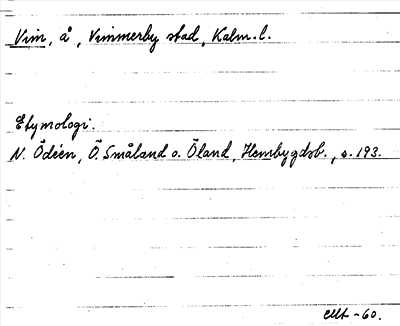 Vim, å, Vimmerby stad, Kalm. l.
Etymologi.
N. Ödéen, Ö. Småland o. Öland, Hembygdsb., s. 193.
-60.